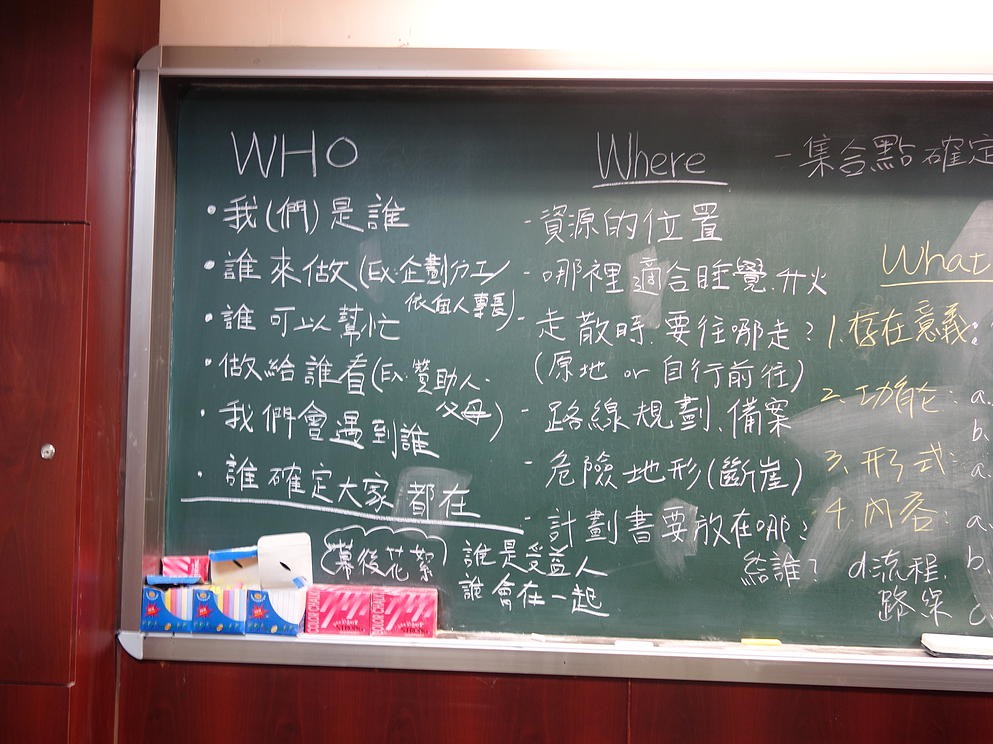 WHO
• 我(們)是誰
• 誰來做(Ex:企劃分工/
依個人專長)
• 誰可以幫忙
• 做給誰看(Ex:贊助人.
父母)
• 我們會遇到誰
• 誰確定大家都在
(幕後花絮)
誰是受益人
誰會在一起
Where
- 集合點確定
- 資源的位置
- 哪裡適合睡覺.升火
- 走散時.要往哪走?
(原地 or 自行前往)
- 路線規劃.備案
- 危險地形(斷崖)
- 計劃書要放在哪?
結誰?
What
1.存在意義:
2.功能: a.
b.
3.形式: a.
4.內容: a.
b.
d.流程.
路線
c.
COLOR CHALK
STRONG
COLOR CHALK
STRONG